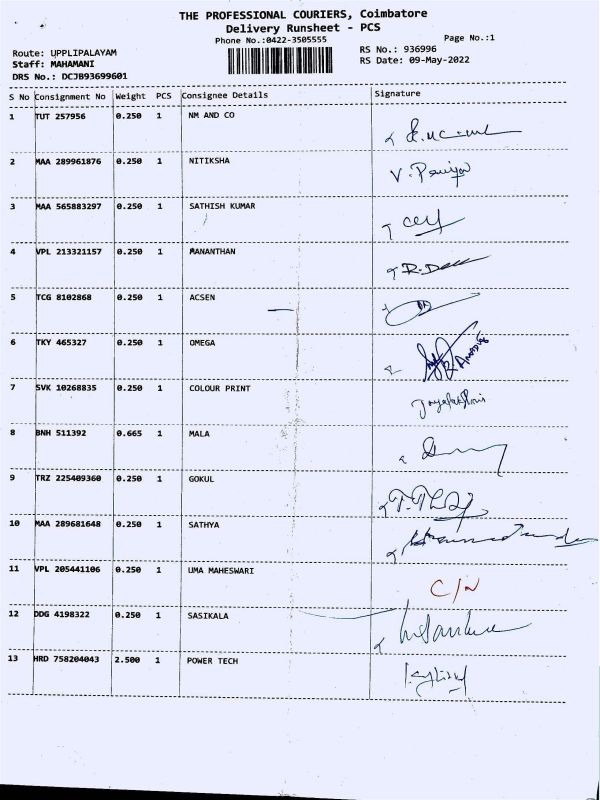 THE PROFESSIONAL COURIERS, Coimbatore
Delivery Runsheet - PCS
Phone No.:0422-3505555 Page No.:1
Route: UPPLIPALAYAM RS No.: 936996
Staff: MAHAMANI RS Date: 09-May-2022
DRS No.: DCJB93699601
S No Consignment No Weight PCS Consignee Details Signature
1 TUT 257956 0.250 1 NM AND CO
2 MAA 289961876 0.250 1 NITIKSHA
3 MAA 565883297 0.250 1 SATHISH KUMAR
4 VPL 213321157 0.250 1 MANANTHAN
5 TCG 8102868 0.250 1 ACSEN
6 TKY 465327 0.250 1 OMEGA
7 SVK 10268835 0.250 1 COLOUR PRINT
8 BNH 511392 0.665 1 MALA
9 TRZ 225409360 0.250 1 GOKUL
10 MAA 289681648 0.250 1 SATHYA
11 VPL 205441106 0.250 1 UMA MAHESWARI C/N
12 DDG 4198322 0.250 1 SASIKALA
13 HRD 758204043 2.500 1 POWER TECH